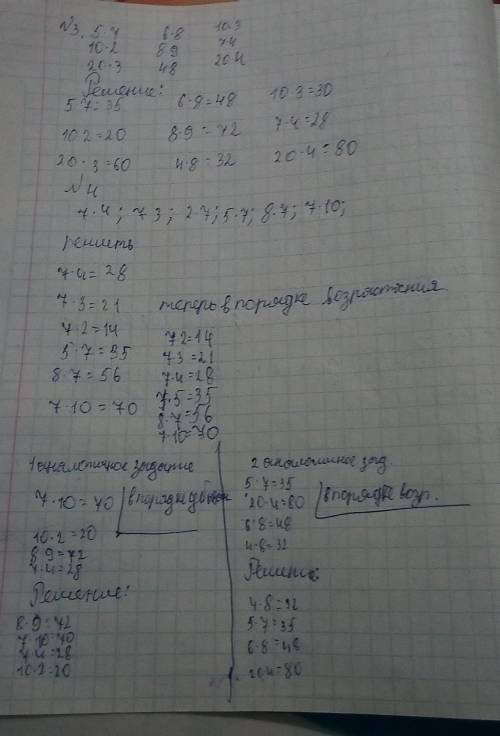 №3. 5·7 6·8 10·3
10·2 8·9 7·4
20·3 4·8 20·4
Решение:
5·7=35 6·8=48 10·3=30
10·2=20 8·9=72 7·4=28
20·3=60 4·8=32 20·4=80
№4
7·4; 7·3; 2·7; 5·7; 8·7; 7·10;
решить
7·4=28
7·3=21 теперь в порядке возрастания.
7·2=14
5·7=35
8·7=56
7·10=70
7·2=14
7·3=21
7·4=28
7·5=35
8·7=56
7·10=70
1 аналогичное задание
7·10=70 в порядке убыван
10·2=20
8·9=72
7·4=28
Решение:
8·9=72
7·10=70
7·4=28
10·2=20
2 аналогичное зад.
5·7=35
20·4=80 в порядке возр.
6·8=48
4·8=32
Решение:
4·8=32
5·7=35
6·8=48
20·4=80